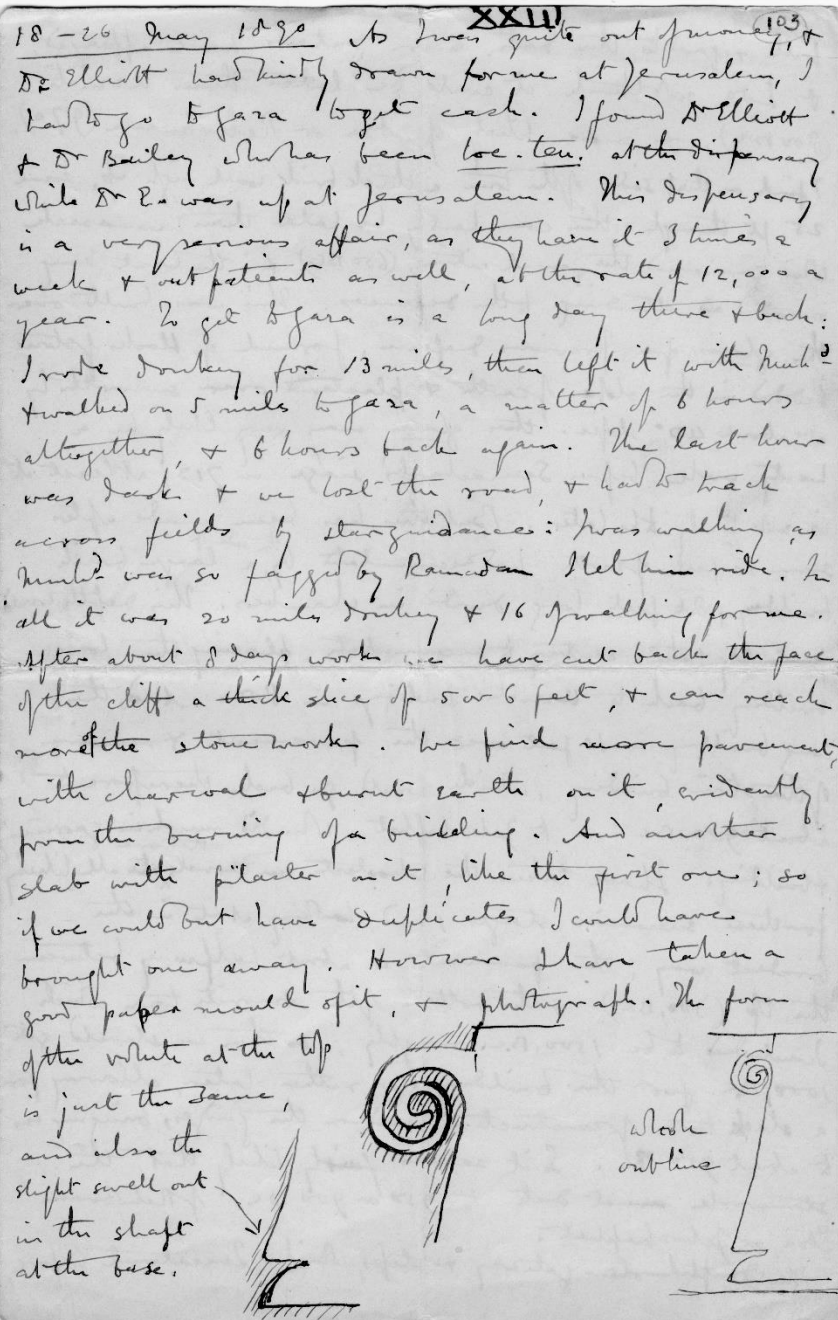 XXIII
103
18 - 26 May 1890 As I was quite out of money, &
Dr Elliott had kindly drawn for me at Jerusalem, I
had to go to Gaza to get cash. I found Dr Elliott
& Dr Bailey who has been loc. ten. at the dispensary
while Dr E. was up at Jerusalem. This dispensary
is a very serious affair, as they have it 3 times a
week & outpatients as well, at the rate of 12,000 a
year. To get to Gaza is a long day there & back:
I rode donkey for 13 miles, then left it with Muhd
& walked on 5 miles to Gaza, a matter of 6 hours
altogether, & 6 hours back again. The last hour
was dark & we lost the road, & had to track
across fields by star guidance: I was walking as
Muhd was so fagged by Ramadan I let him ride. In
all it was 20 miles donkey & 16 of walking for me.
After about 8 days work we have cut back the face
of the cliff a thick slice of 5 or 6 feet, & can reach
more of the stone work. We find more pavement,
with charcoal & burnt earth on it, evidently
from the burning of a building. And another
slab with pilaster on it, like the first one; so
if we could but have duplicates I could have
brought one away. However I have taken a
good paper mould of it, & photograph. The form
of the volute at the top
is just the same,
and also the
slight swell out
in the shaft
at the base.
whole
outline